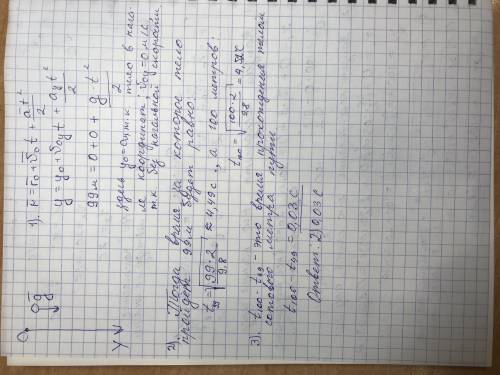 O
g
Y
1). r̄ = r̄₀ + v̄₀t + āt²/2
y = y₀ + v₀yt + ayt²/2
99м = 0 + 0 + g·t²/2
здесь y₀ = 0, т.к. тело в нача-
ле координат, v₀y = 0 м/с
т.к. нет начальной скорости
2). Тогда время за которое тело
пройдет 99м будет равно:
t₉₉ = √(99·2/9,8) ≈ 4,49с, а 100 метров:
t₁₀₀ = √(100·2/9,8) = 4,52с
3). t₁₀₀ - t₉₉ - это время прохождения телом
сотового метра пути
t₁₀₀ - t₉₉ = 0,03 с
Ответ: 2) 0,03 с